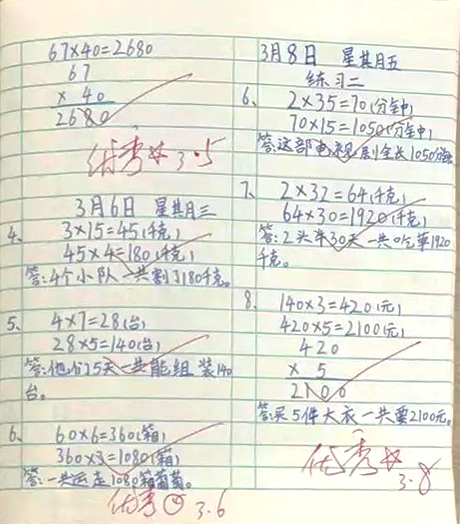 67×40=2680
67
× 40
2680
优秀 3.5
3月6日 星其月三
4、 3×15=45(千克)
45×4=180(千克)
答:4个小队一共割了180千克。
5、 4×7=28(台)
28×5=140(台)
答:他们5天一共能组装140
台。
6、 60×6=360(箱)
360×3=1080(箱)
答:一共运走1080箱葡萄。
优秀 3.6
3月8日 星其月五
练习二
6、 2×35=70(分钟)
70×15=1050(分钟)
答:这部电视剧全长1050分钟
7、 2×32=64(千克)
64×30=1920(千克)
答:2头牛30天一共吃草1920
千克。
8、 140×3=420(元)
420×5=2100(元)
420
× 5
2100
答:买5件大衣一共要2100元。
优秀 3.8